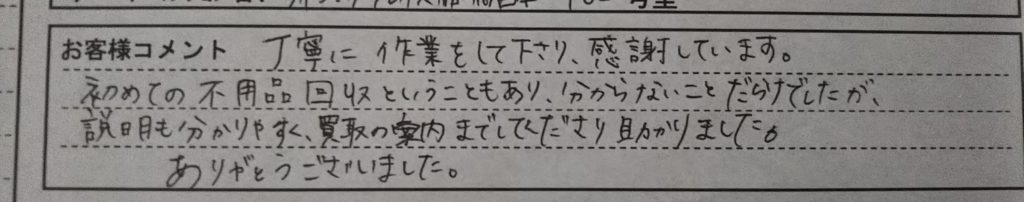 お客様コメント 丁寧に作業をして下さり、感謝しています。
初めての不用品回収ということもあり、分からないことだらけでしたが、
説明も分かりやすく、買取の案内までしてくださり助かりました。
ありがとうございました。